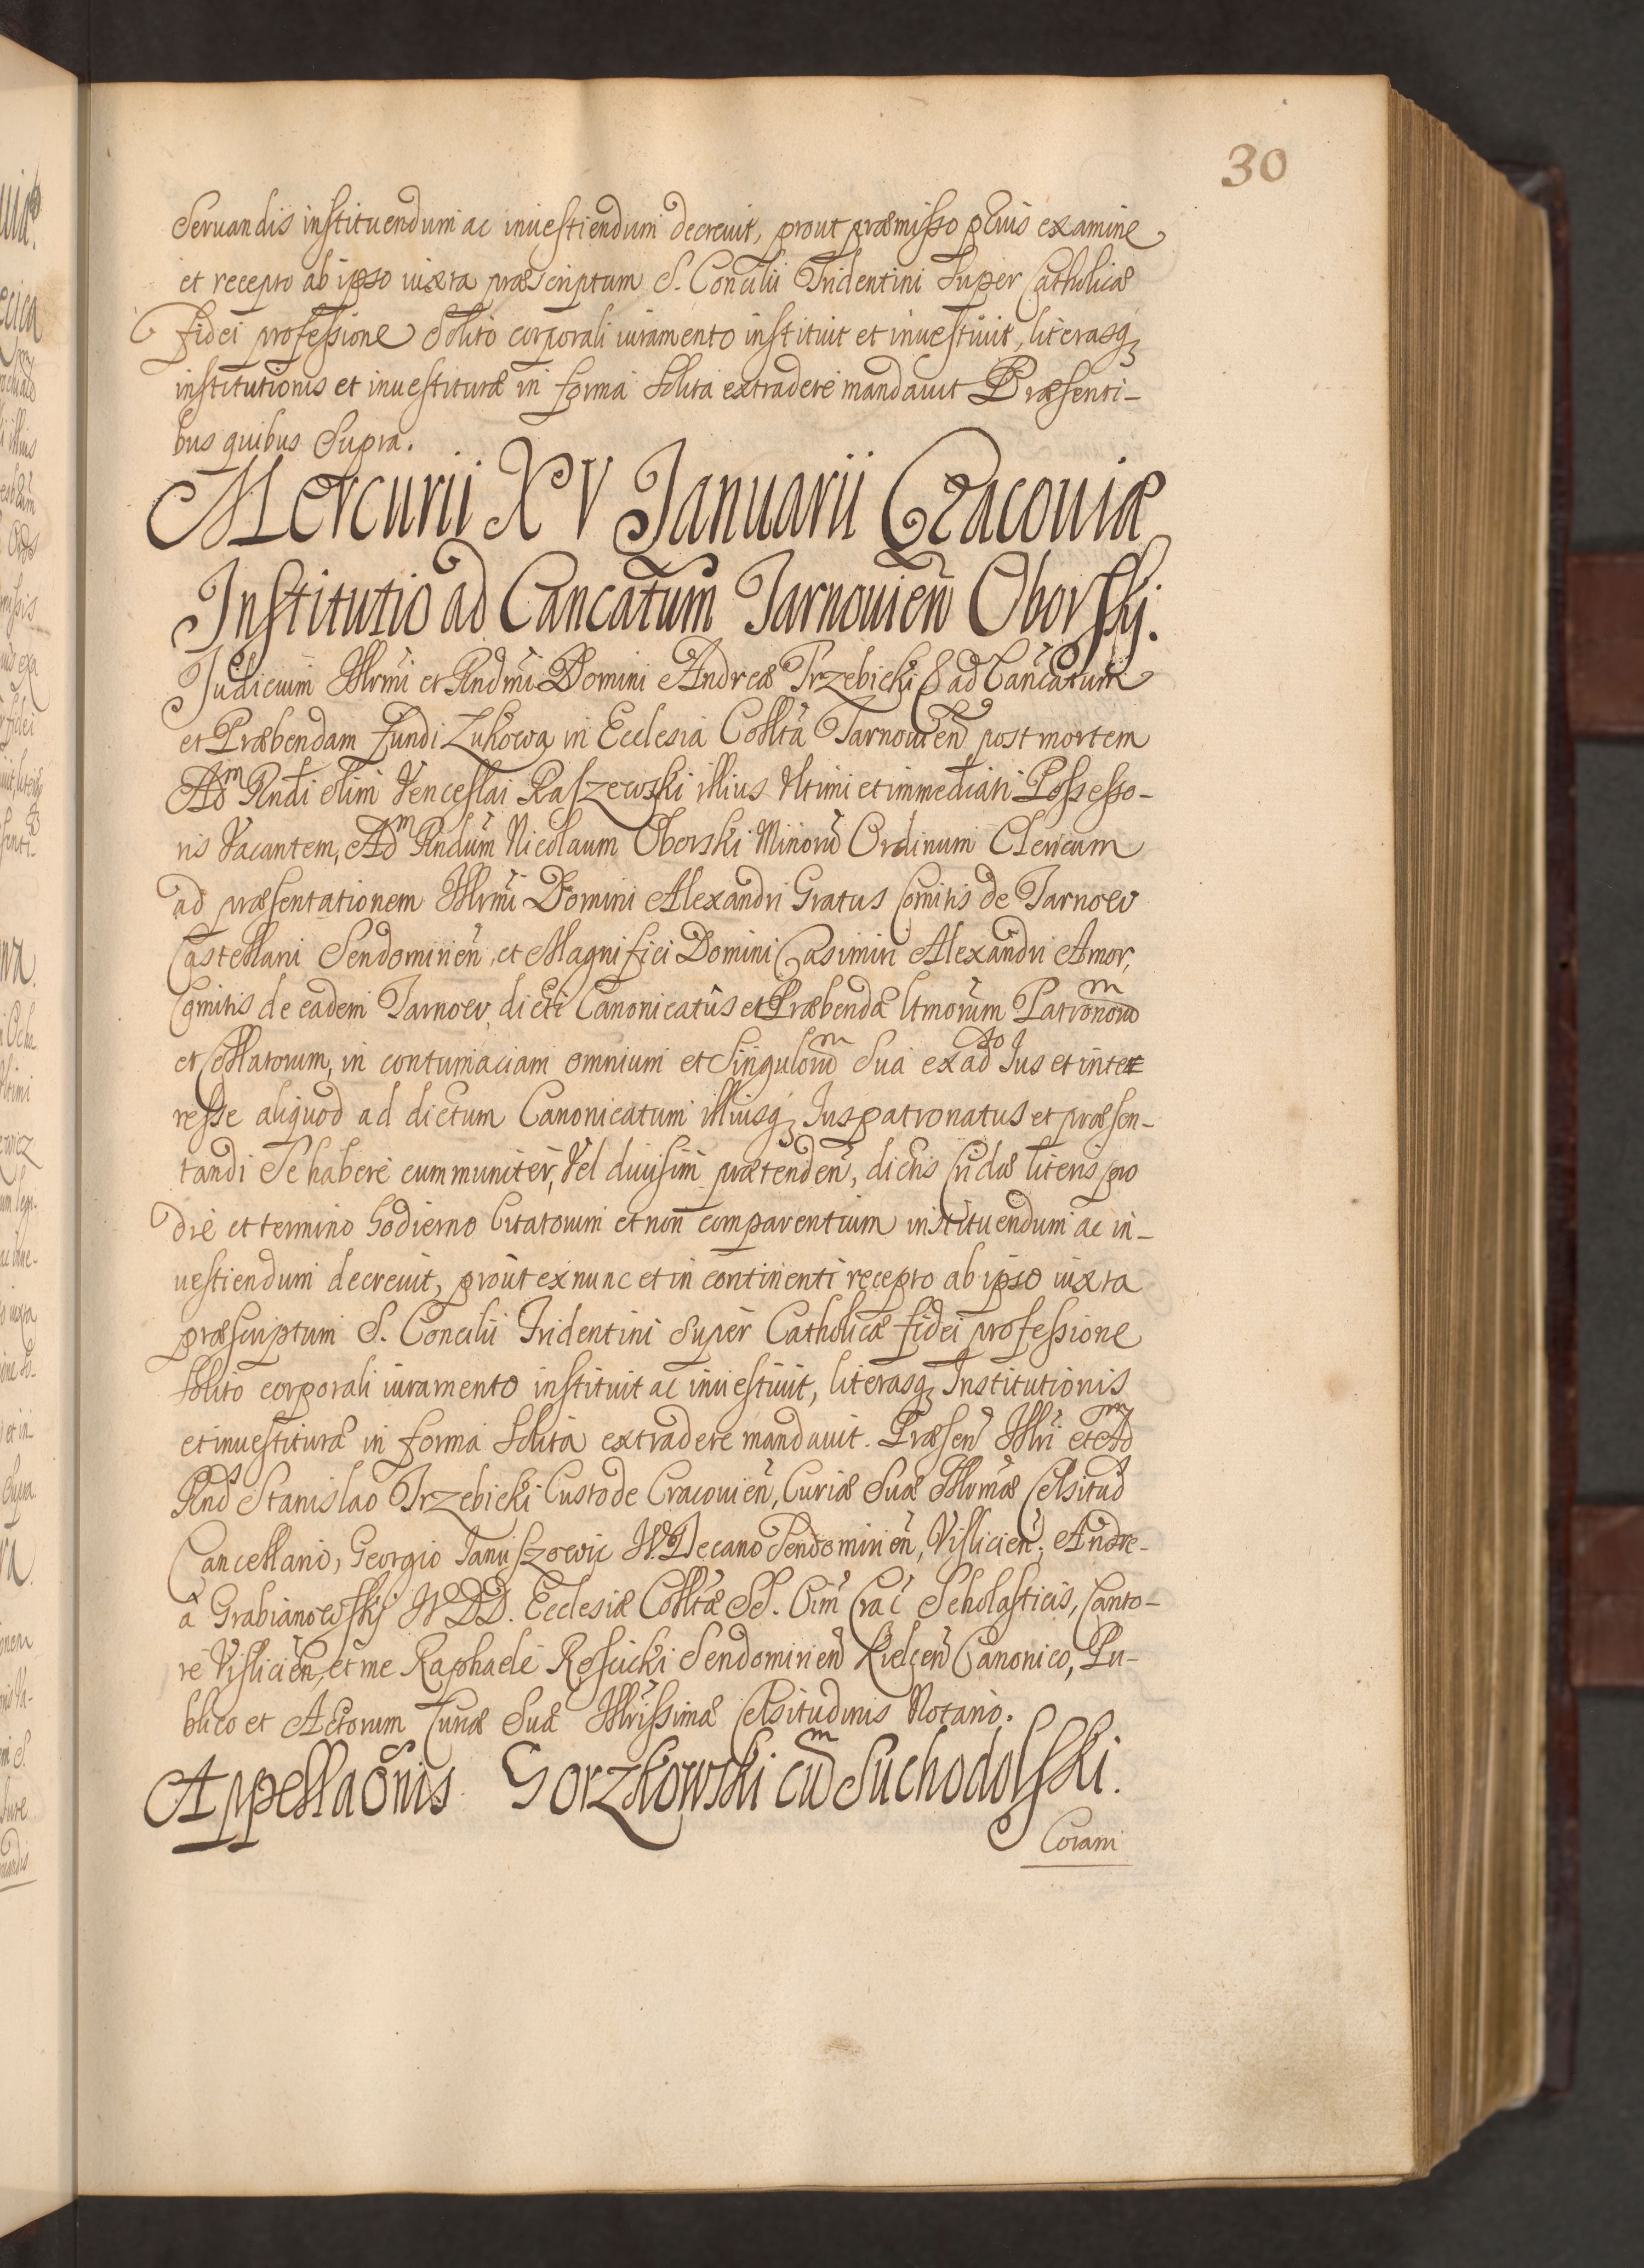 30
Seruandis instituendum ac inuestiendum decreuit, prout præmisso pṙuis examine
et recepto ab ipso iuxta præscriptum S. Concilii Tridentini Super Catholicæ
fidei professione Solito corporali iuramento instituit et inuestiuit, literasq̨
institutionis et inuestituræ in forma solita extradere mandauit Præsenti-
bus quibus Supra.
Mercurii XV Januarii Cracouiæ
Institutio ad Cancatum Tarnouien̄ Oborskj.
Judicium Illrmi et Rndmi Domini Andreæ Trzebicki & ad Cancatum
et Præbendam fundi Zukowa in Ecclesia Collta Tarnouien̄ post mortem
Adm Rndi olim Venceslai Raszewski illius Vltimi et immediati Possesso-
ris Vacantem, Adm Rndum Nicolaum Oborski Minorū Ordinum Clericum
ad præsentationem Illrmi Domini Alexandri Gratus Comitis de Tarnow
Castellani Sendomirien̄, et Magnifici Domini Casimiri Alexandri Amor,
Comitis de eadem Tarnow, dicti Canonicatus et Præbendæ ltmorum Patronorum
et Collatorum, in contumaciam omnium et Singulorum Sua ex ad^to Jus et inte
resse aliquod ad dictum Canonicatum illiusq̨ Juspatronatus et præsen-
tandi Se habere communiter, Vel diuisim prætenden̄, dictis Cridæ literis pro
die et termino hodierno Citatorum et non comparentium instituendum ac in-
uestiendum decreuit, prout ex nunc et in continenti recepto ab ipso iuxta
præscriptum S. Concilii Tridentini Super Catholicæ fidei professione
solito corporali iuramento instituit ac inuestiuit, literasq̨ Institutionis
et inuestituræ in forma solita extradere mandauit. Præsen̄ Illri et Adm
Rndo Stanislao Trzebicki Custode Cracouien̄, Curiæ Suæ Illrmæ Celsitud
Cancellario, Georgio Januszowic W. Decano Sendomirien̄, Vislicien̄, Andre-
a Grabianowskj W DD. Ecclesiæ Colltæ SS. Oim Crac Scholasticis, Canto-
re Vislicien̄, et me Raphaele Roscicki Sendomirien̄ Kielcen̄ Canonico, Pu-
blico et Actorum Curiæ Suæ Illrissimæ Celsitudinis Notario.
Appellaōnis Gorzkowski cum Suchodolski.
Coram